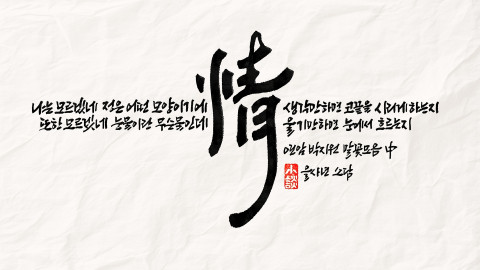 나는 모르겠네 정은 어떤 모양이기에
또한 모르겠네 눈물이란 무슨물인데
情
생각만하면 코끝을 시리게 하는지
울기만하면 눈에서 흐르는지
연암 박지원 말꽃모음 中
을사년 소담